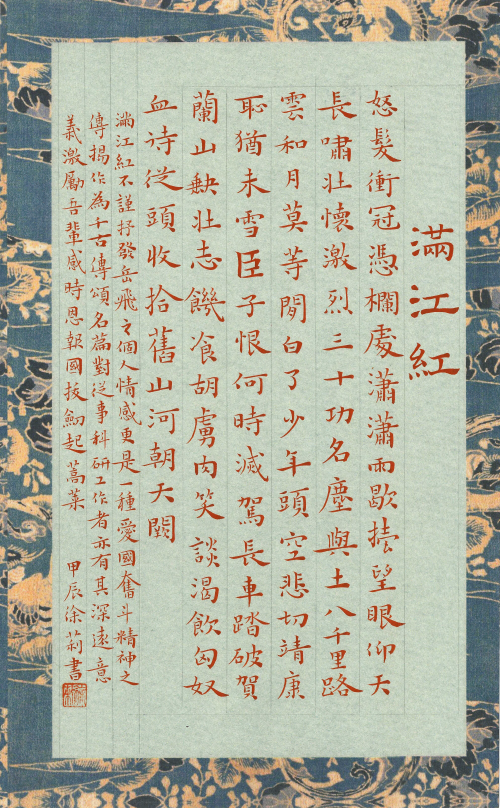 滿江紅
怒髮衝冠憑欄處瀟瀟雨歇擡望眼仰天
長嘯壯懷激烈三十功名塵與土八千里路
雲和月莫等閒白了少年頭空悲切靖康
恥猶未雪臣子恨何時滅駕長車踏破賀
蘭山缺壯志饑飡胡虜肉笑談渴飲匈奴
血待從頭收拾舊山河朝天闕
滿江紅不謹抒發岳飛之個人情感更是一種愛國奮斗精神之
傳揚作為千古傳頌名篇對從事科研工作者亦有其深遠意
義激勵吾輩感時思報國拔劍起蒿萊 甲辰徐莉書